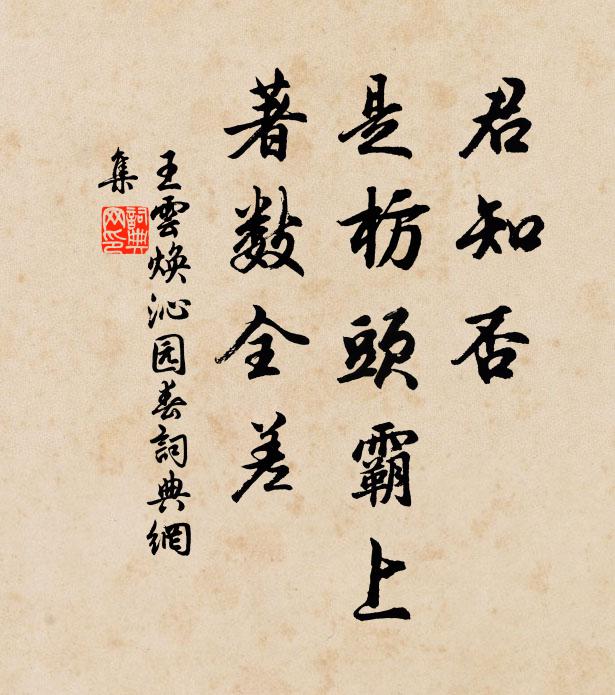 君知否
是枋頭霸上
著数全差
王雲煥沁园春詞典網
集
詞典網印